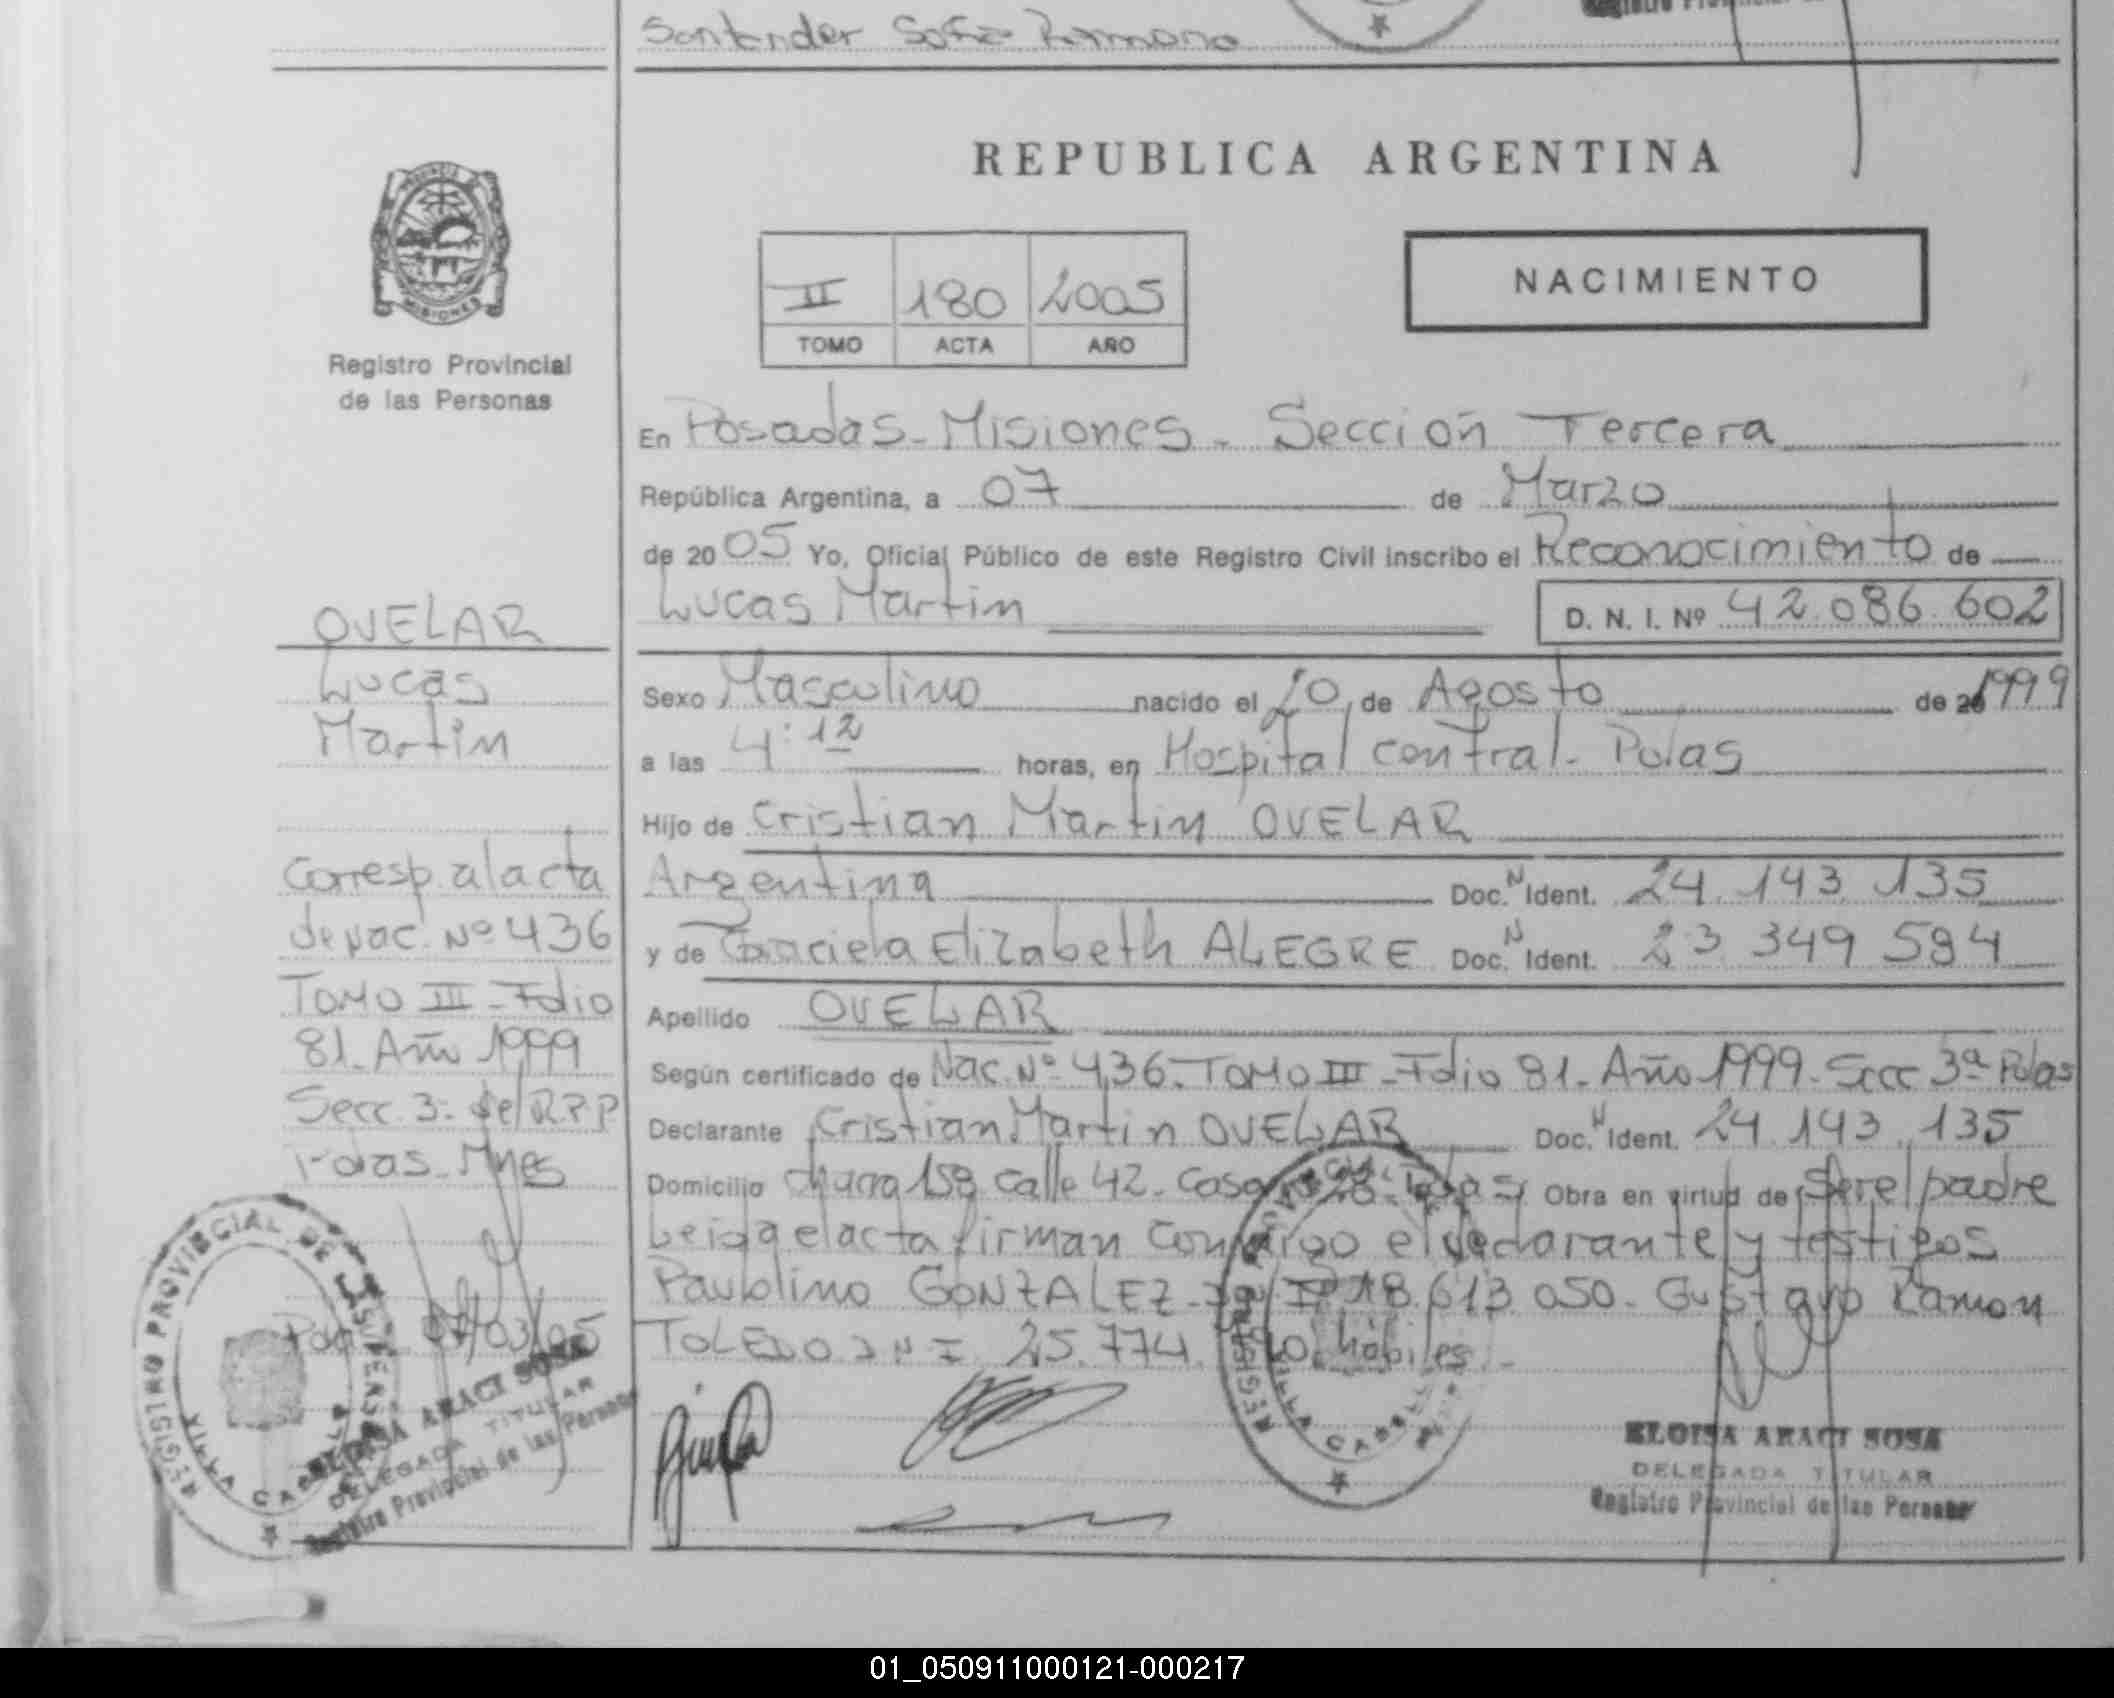 Santander Sofia Romano
REPUBLICA ARGENTINA
PROVINCIA
MISIONES
Registro Provincial
de las Personas
II 180 2005
TOMO ACTA AÑO
NACIMIENTO
OVELAR
Lucas
Martin
Corresp. al acta
de nac. Nº 436
TOMO III - Folio
81. Año 1999
Secc. 3ª del R.P.P
Pdas - Mnes
07/03/05
REGISTRO PROVINCIAL DE LAS PERSONAS
VILLA CABELLO
ELOISA ARACI SOSA
DELEGADA TITULAR
Registro Provincial de las Personas
En Posadas - Misiones - Sección Tercera
República Argentina, a 07 de Marzo
de 2005 Yo, Oficial Público de este Registro Civil inscribo el Reconocimiento de
Lucas Martin D. N. I. Nº 42.086.602
Sexo Masculino nacido el 20 de Agosto de 1999
a las 4:12 horas, en Hospital central - Pdas
Hijo de Cristian Martin OVELAR
Argentina Doc. N Ident. 24.143.135
y de Graciela Elizabeth ALEGRE Doc. N Ident. 23 349 594
Apellido OVELAR
Según certificado de Nac. Nº 436 - TOMO III - Folio 81 - Año 1999 - Secc 3ª Pdas
Declarante Cristian Martin OVELAR Doc. N Ident. 24.143.135
Domicilio chacra 159 calle 42 - casa Obra en virtud de Ser el padre
Leida el acta firman conmigo el declarante y testigos
Paulolino GONZALEZ - D N I 18.613.050 - Gustavo Ramon
TOLEDO D N I 25.774. hábiles -
REGISTRO PROVINCIAL
VILLA CABELLO
ELOISA ARACI SOSA
DELEGADA TITULAR
Registro Provincial de las Personas
01_050911000121-000217